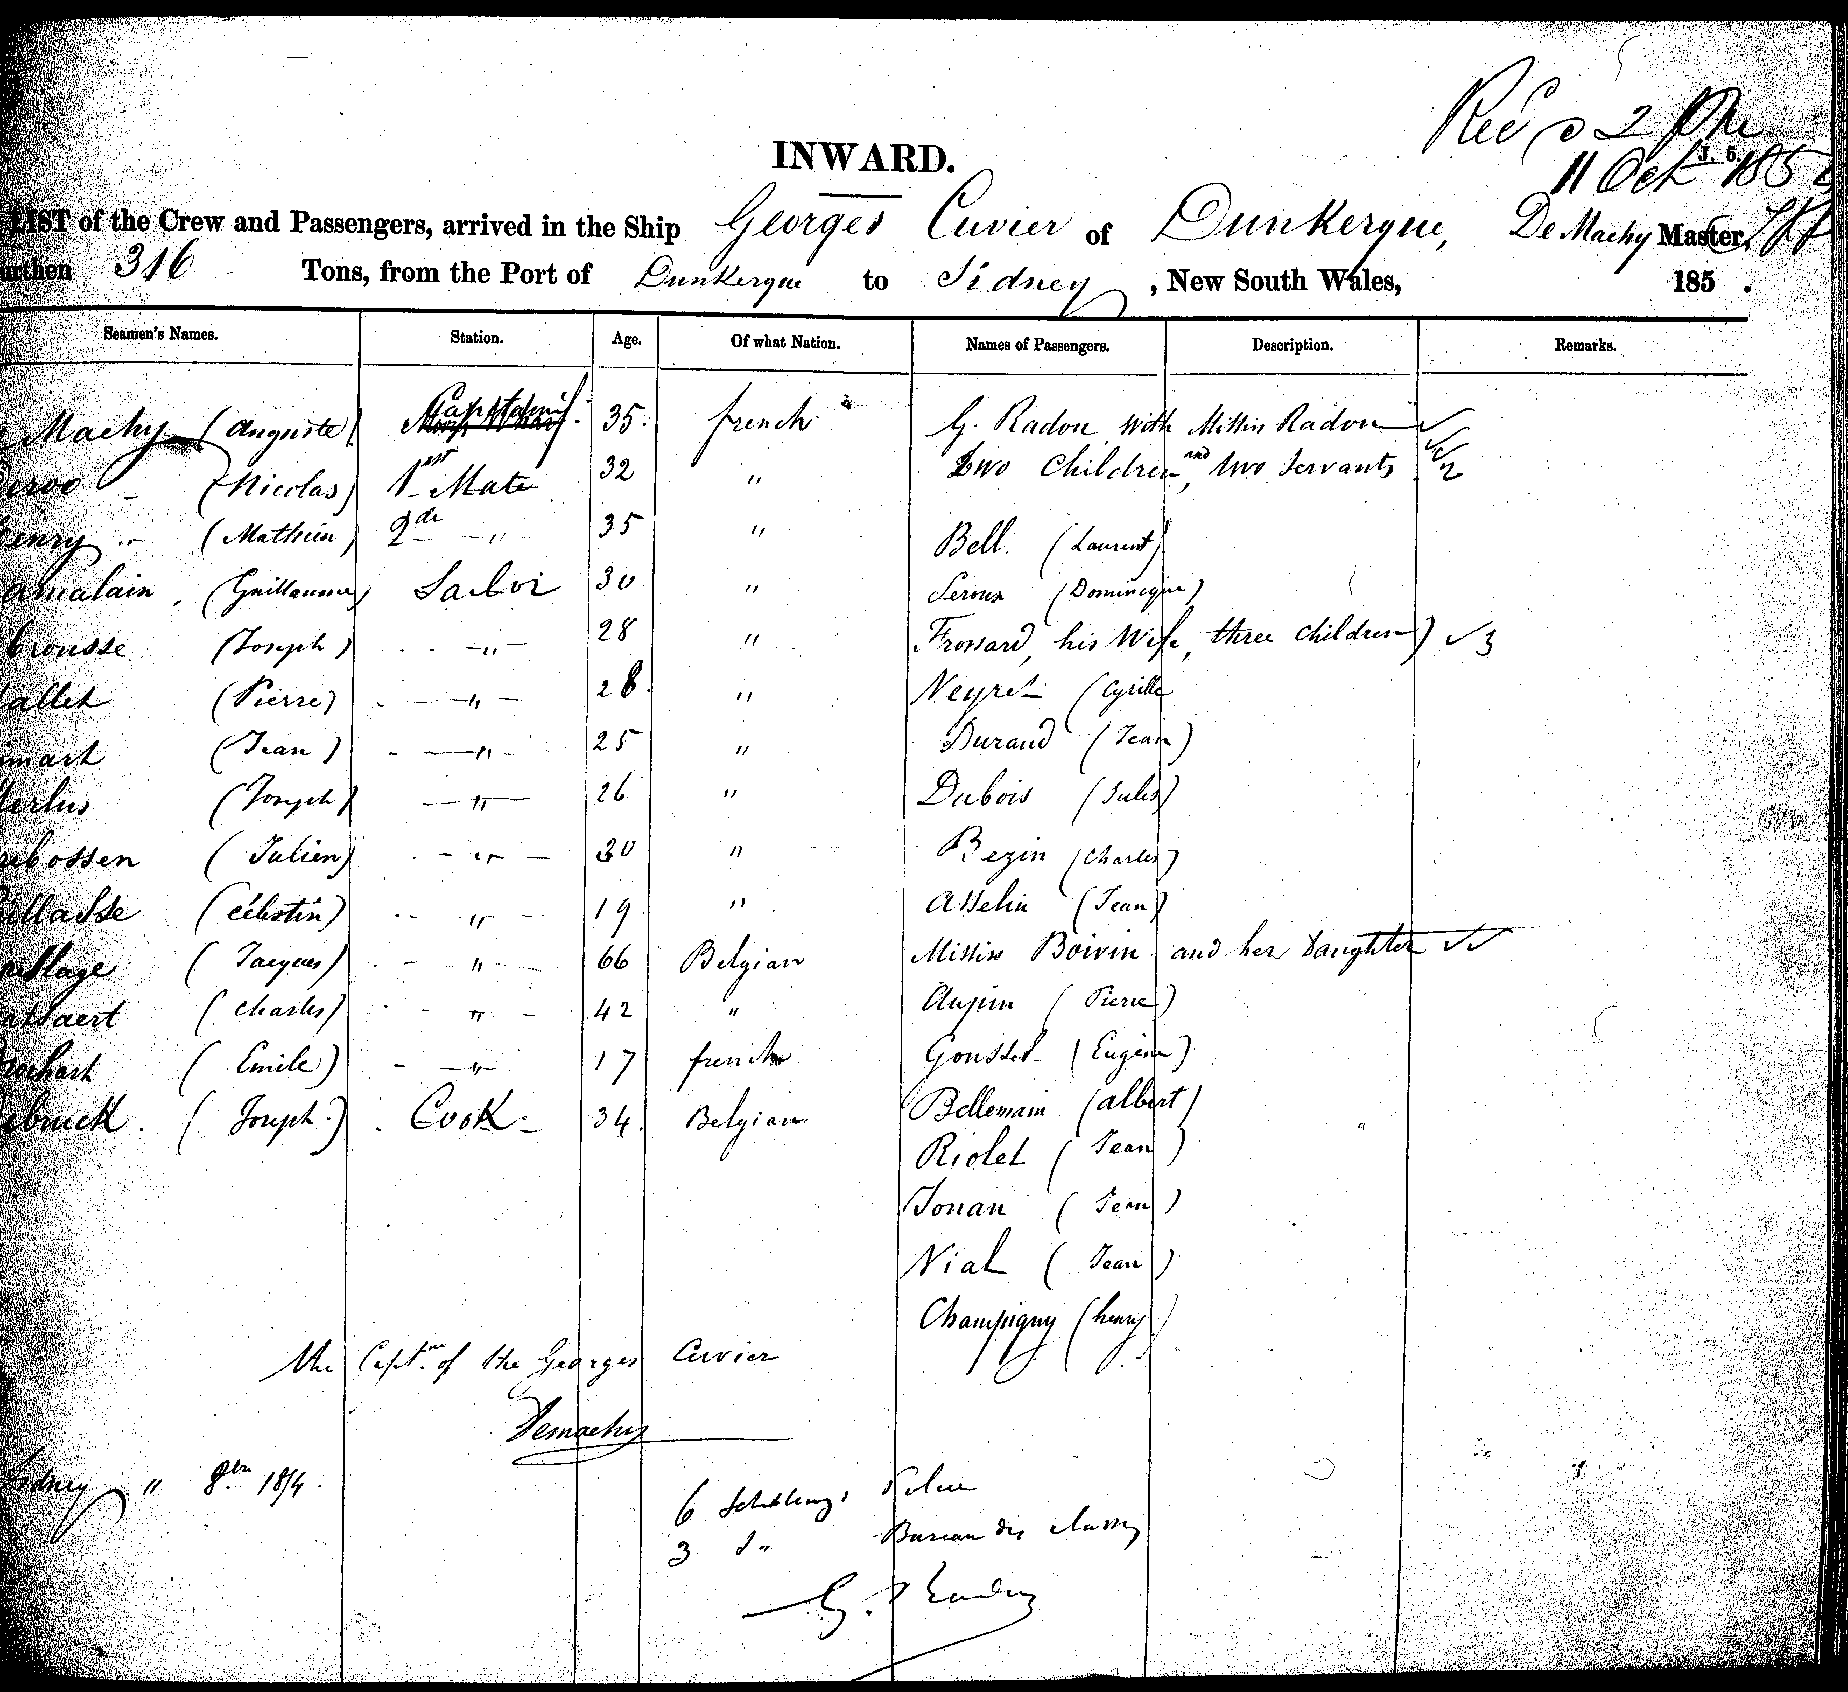 Rec'd 2 PM
J. 5.
11 Oct 185
INWARD.
LIST of the Crew and Passengers, arrived in the Ship Georges Cuvier of Dunkerque, De Machy Master,
urthen 316 Tons, from the Port of Dunkerque to Sidney, New South Wales, 185 .
Seamen's Names. Station. Age. Of what Nation. Names of Passengers. Description. Remarks.
Machy (Auguste) 35. french G. Radou with Mistiss Radou
(Nicolas) 1st Mate 32 " two Children, and two Servants 2
enry (Mathieu) 2de " 35 " Bell. (Laurent)
malain (Guillaume) Sailor 30 " Leroux (Dominique)
brousse (Joseph) " 28 " Frossard, his Wife, three Children) 3
allet (Pierre) " 28 " Neyret (Cyrille
mart (Jean) " 25 " Durand (Jean)
erlus (Joseph) " 26 " Dubois (Jules)
bossen (Julien) " 30 " Bezin (Charles)
llasse (Célestin) " 19 " Asselin (Jean)
llage (Jacques) " 66 Belgian Mistiss Boivin and her Daughter
aert (Charles) " 42 " Aupin (Pierre)
chart (Emile) " 17 french Gousset (Eugène)
ebruck. (Joseph.) Cook - 34. Belgian Bellemain (Albert)
Riolet (Jean)
Jouan (Jean)
Vial (Jean)
Champigny (henry)
the Captn of the Georges Cuvier
Demachy
idney " 8bre 18
6 Schillings
3 d° Bureau des